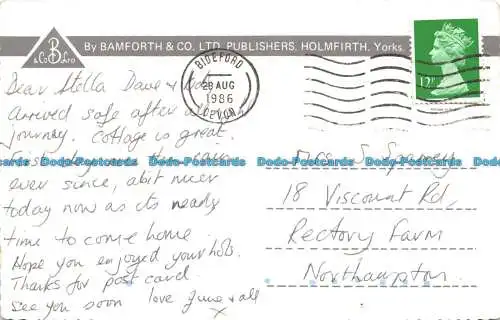 By BAMFORTH & CO. LTD. PUBLISHERS, HOLMFIRTH, Yorks.
B
& Co Ltd
BIDEFORD
28 AUG
1986
DEVON
12
Dear Stella Dave &
Arrived safe after a
journey. Cottage is great.
First day and the
ever since, a bit nicer
today now as its nearly
time to come home.
Hope you enjoyed your hols.
Thanks for post card.
See you soon love June & all
x
Mrs S
18 Viscount Rd,
Rectory Farm
Northampton.
Postcards
Postcards
Postcards
Postcards
Postcards
Postcards